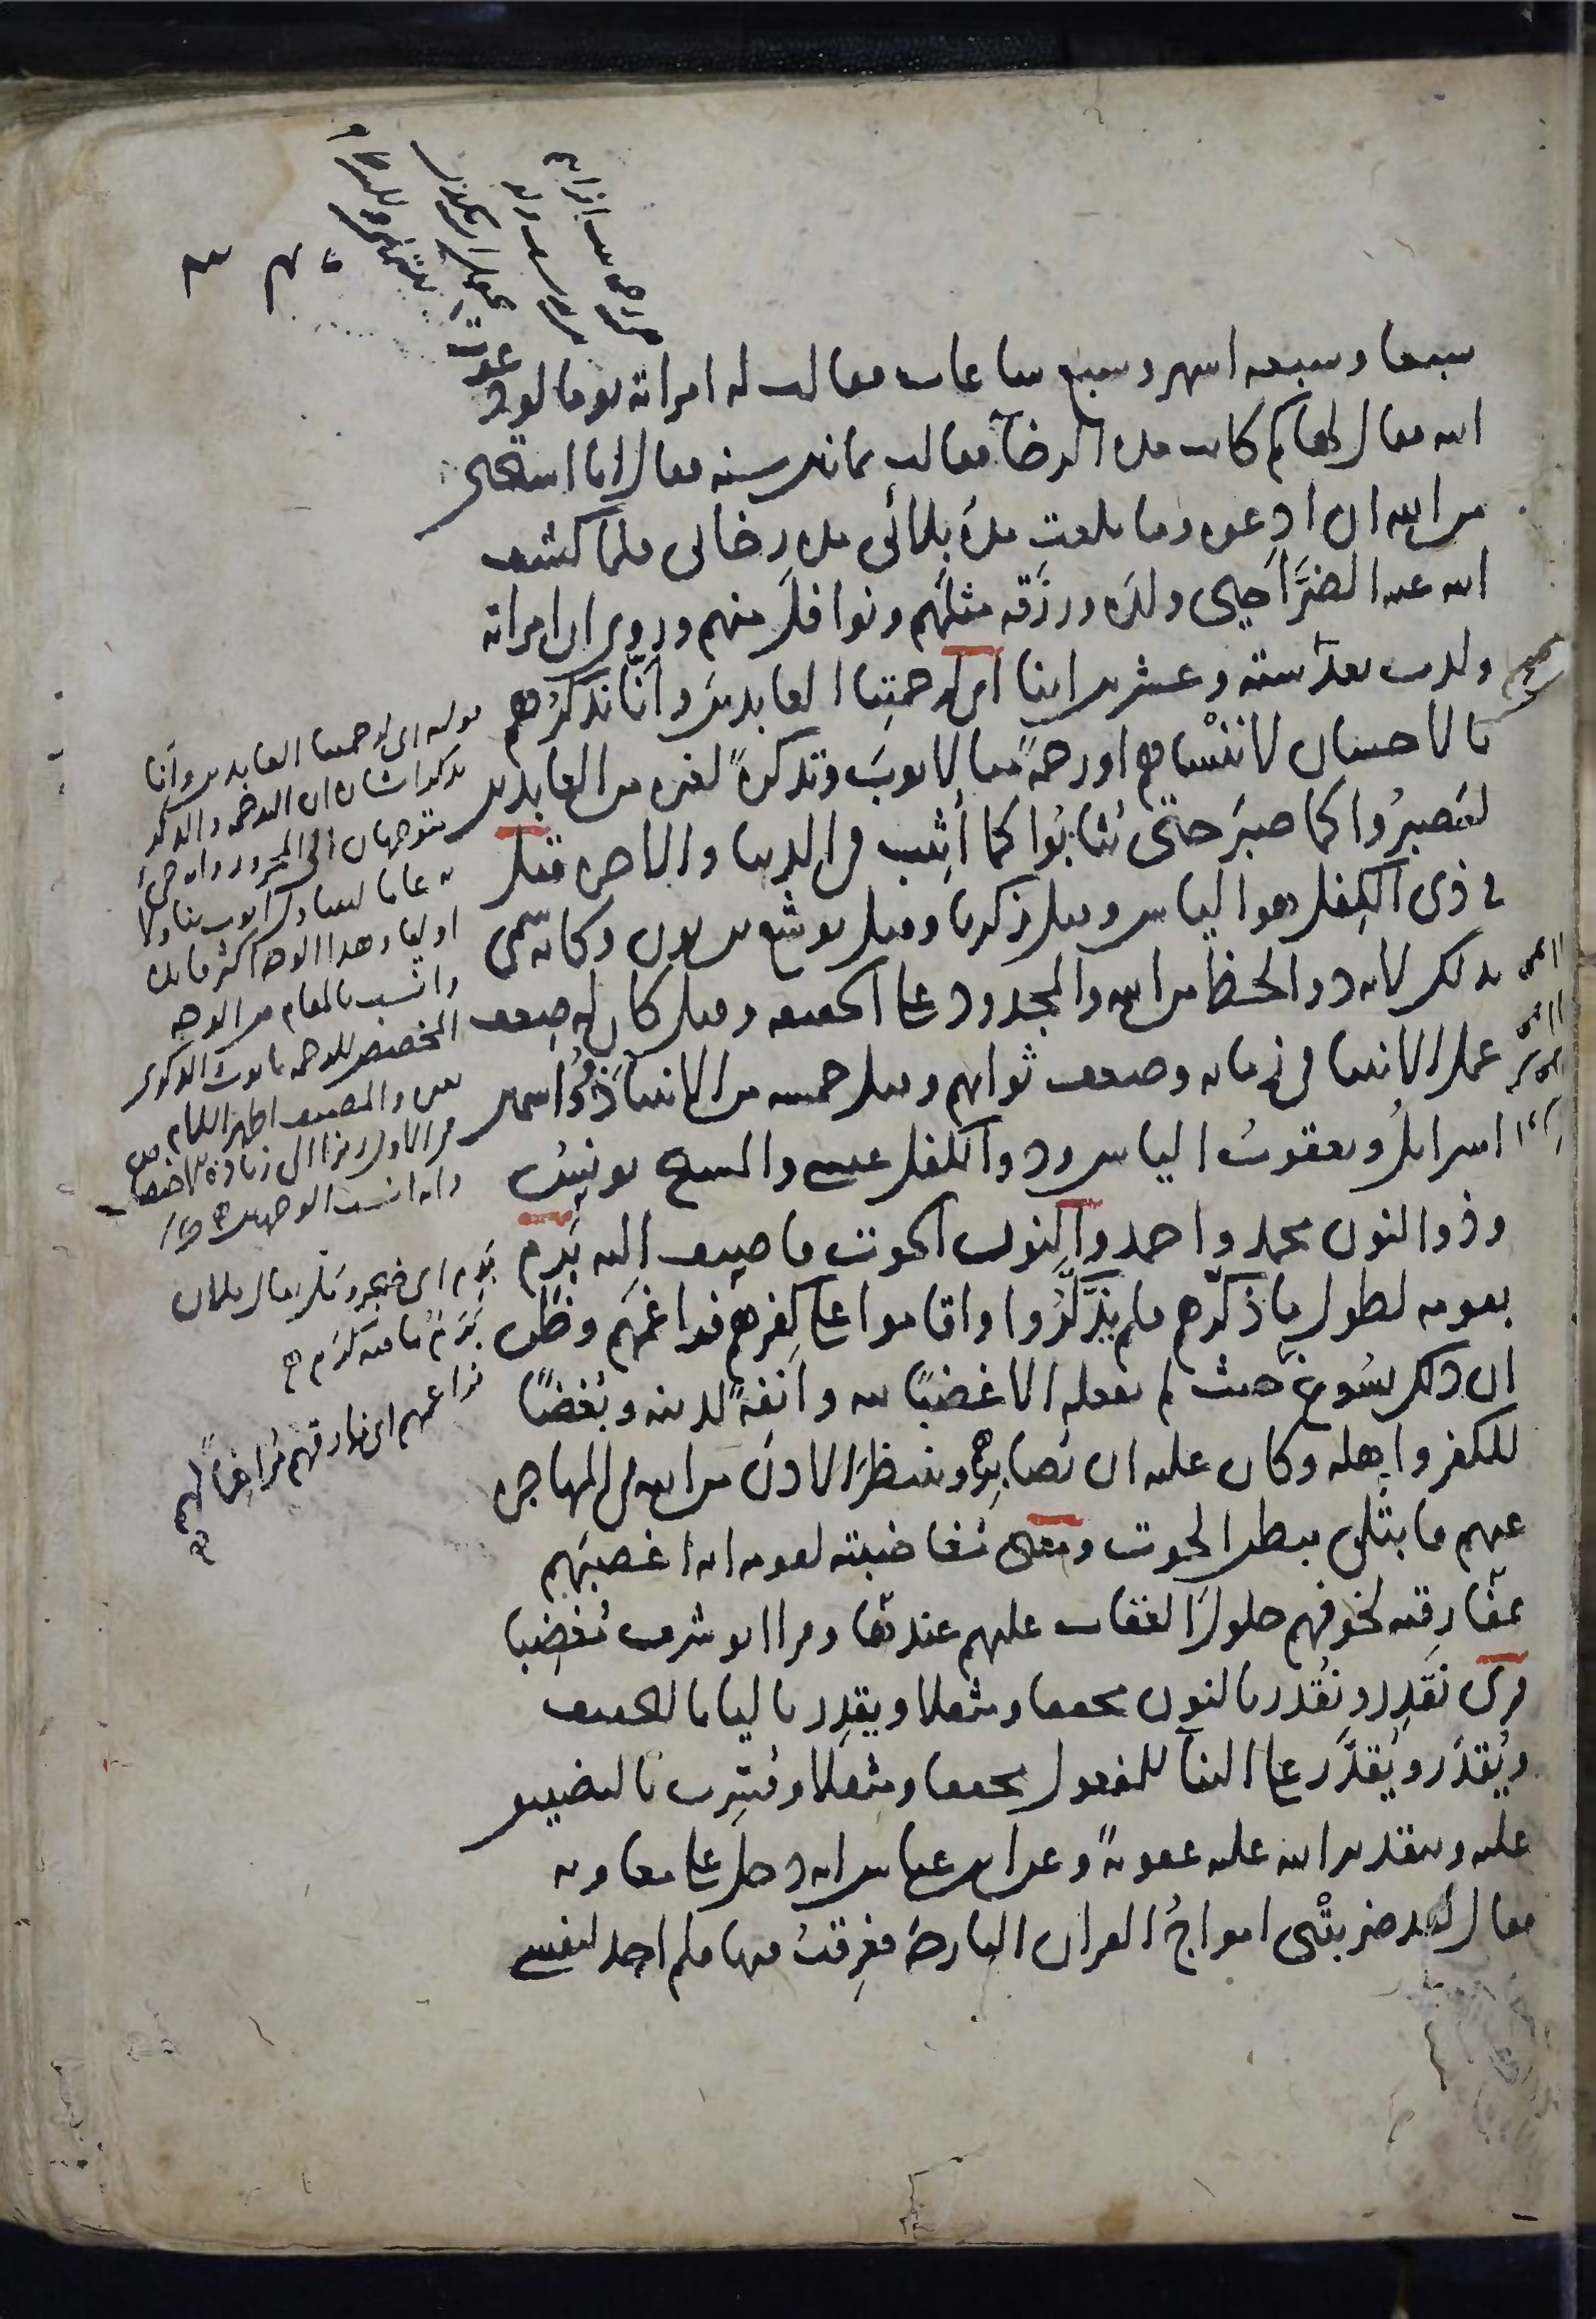 سبعا وسبعه اشهر وسبع ساعات فقالت له امراته يوما لو دعوت
الله فقال لها كم كانت مده الرخآ فقالت ثمانين سنه فقال انا استحيي
من الله ان ادعوه وما بلغت مدة بلائي مده رخائي فلما كشف
الله عنه الضرَّ احيى ولده ورزقه مثلهم ونوافل منهم وروي ان امراته
ولدت بعدُ سته وعشرين ابنا اي لرحمتِنا العابدين وانّا نذكرُهم
بالاحسان لا ننسٰاهم او رحمةً منا لايوبَ وتذكرةً لغيره من العابدين
ليَصبرُوا كما صبرَ حتى يُثابُوا كما أُثِيب في الدنيا والاخره قيل
في ذي الكِفل هو الياس وقيل زكريا وقيل يوشع بن نون وكانه سُمّي
بذلك لانه ذو الحظ من الله والمجدود على الحقيقه وقيل كان له ضعف
عمل الانبيا في زمانه وضعف ثوابهم وقيل خمسه من الانبيا ذوُو اسمين
اسرائلُ ويعقوبُ الياس وذو الكفل عيسى والمسيح يونسُ
وذوا النون محمد واحمد والنون الحوت فاضيف اليه بَرِم
بقومه لطول ما ذكّرهم فلم يذَّكَّرُوا واقاموا على كفرهم فراغمَهم وظن
ان ذلك يَسُوغ حيث لم يفعله الا غضبًا لله وانَفةً لدينه وبُغضًا
للكفر واهله وكان عليه ان يُصابِر وينتظرَ الاذنَ من الله في المهاجره
عنهم فابتُلي ببطن الحوت ومعنى مُغاضبته لقومه انه اغضبَهم
بمفارقته لخوفهم حلولَ العقاب عليهم عندها وقرا ابو شرف مُغضِبا
قري نَقدِر ونُقدّر بالنون مخففا ومثقلا ويقدِر باليا بالتخفيف
ويُقدَر ويُقدَّر على البنآ للمفعول مخففا ومثقلا وفُسِّرت بالتضييق
عليه وبتقدير الله عليه عقوبةً وعن ابن عباس انه دخل على معاويه
فقال لقد ضربتْني امواجُ القران البارحه فغرِقتُ فيها فلم اجد لنفسي
قوله اي لرحمتنا العابدين وانا
نذكر اشار ان الرحمه والذكر
يتوجهان الى المجرور وانه جئ
به عاما ليتناول ايوب تناولا
اوليا وهذا الوجه اكثر فايده
وانسب بالمقام من الوجه
المخصص للرحمه بايوب
بَرِم اي ضجر وقلق يقال فلان
بَرِمٌ
فراغمهم اي فارقهم مُراغِمًا لهم